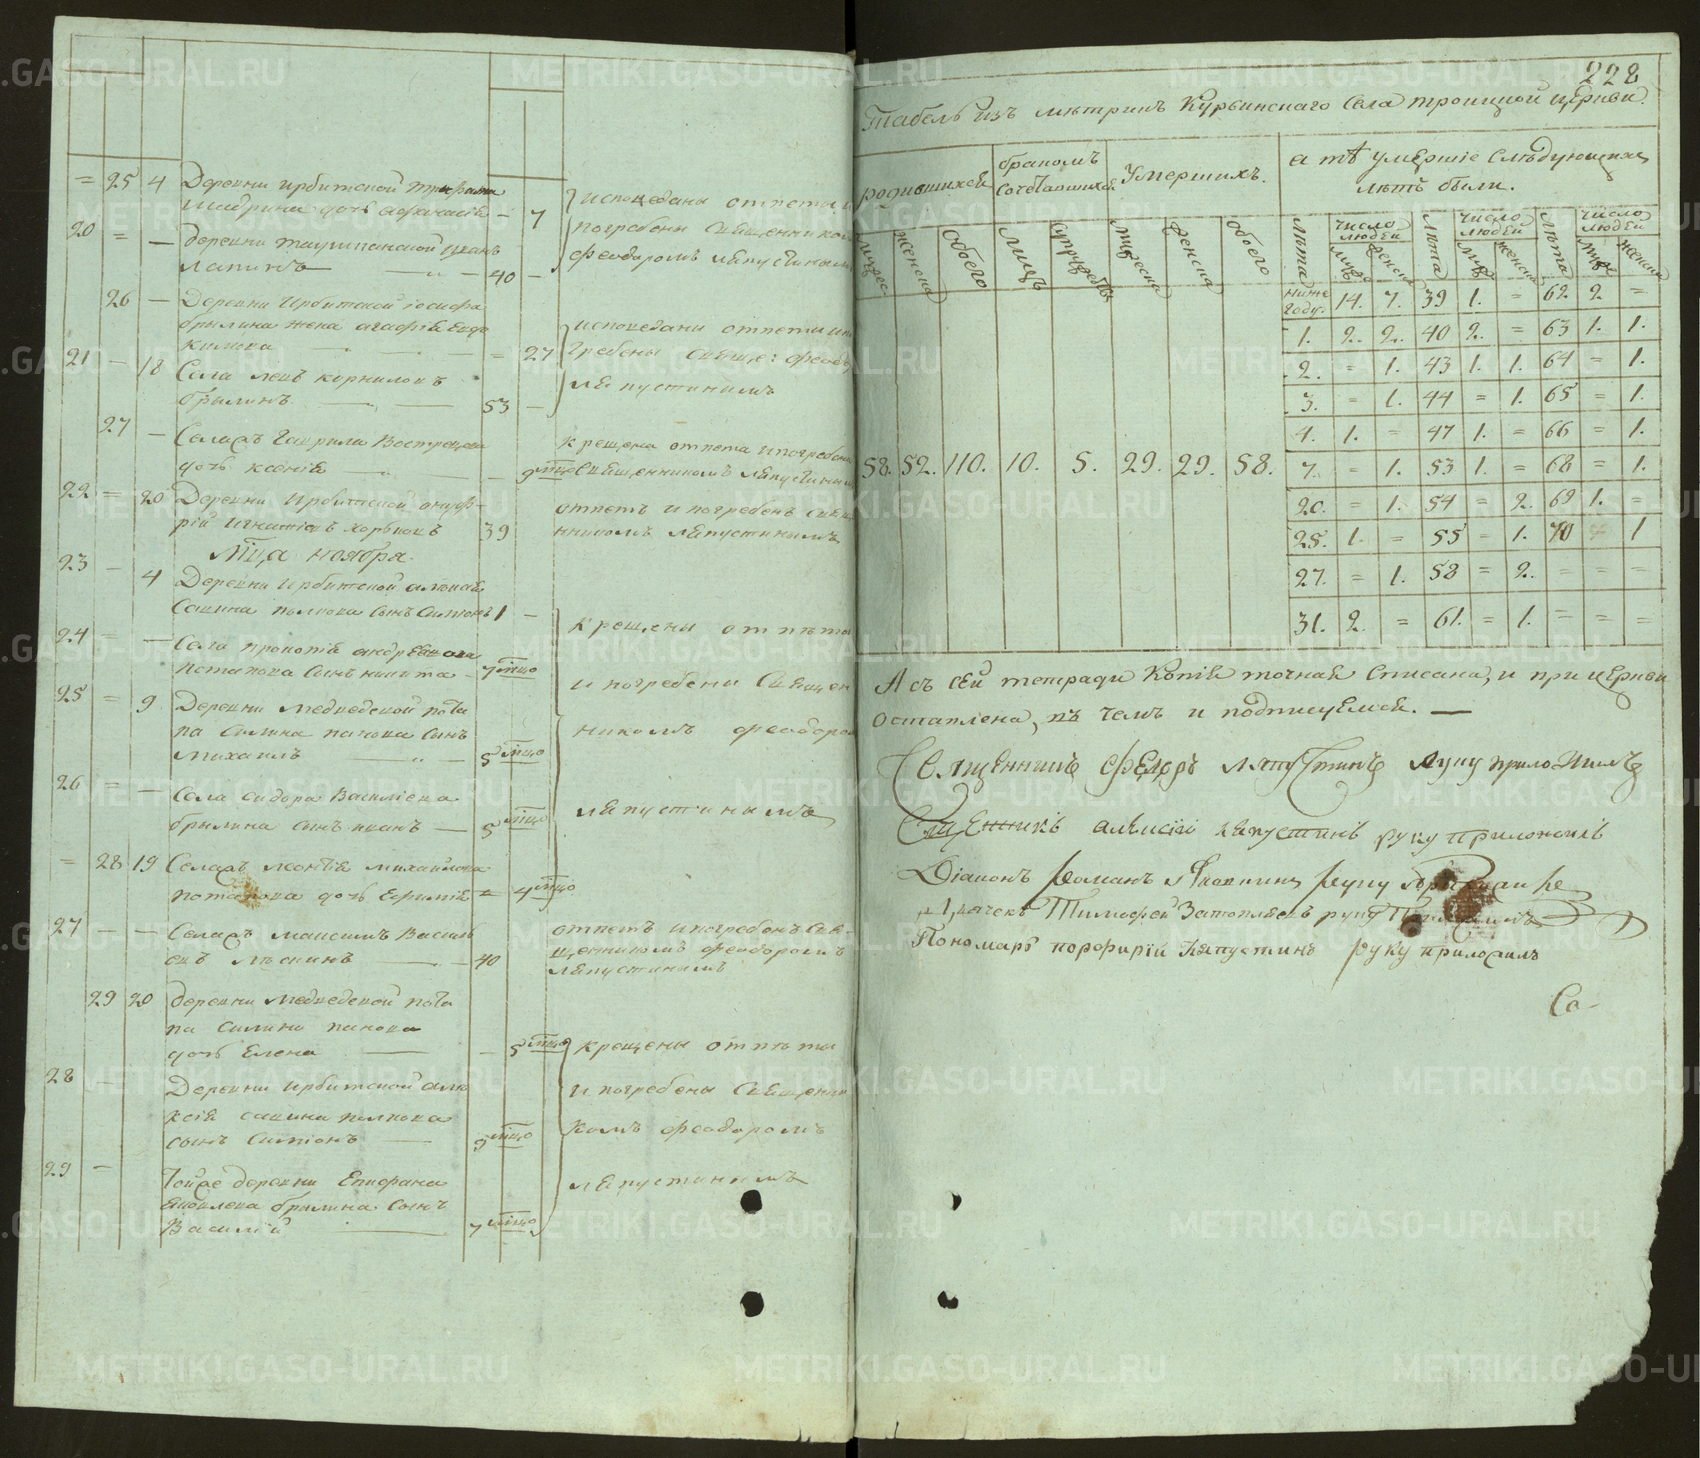 = 25 4 Деревни ирбитской трифана
шадрина дочь афанасія — 7
исповеданы отпеты и
20 = — деревни таушканской иванъ
погребены священнико
лапинъ — 40 —
феодоромъ ляпустинымъ
26 — Деревни Ирбитской іосифа
брылина жена агафія евдо
кимова = 27
исповедани отпети и по
гребены священ: феодо
ляпустинымъ
21 — 18 Села левъ корниловъ
брылинъ — 53 —
27 — Селаже Гаврила Вострецова
дочь ксенія — 9 мцо
крещена отпета и погребена
священникомъ ляпустиным
22 = 20 Деревни Ирбитской онуф-
рій игнатіевъ хорьковъ 39
отпетъ и погребенъ свяще
нникомъ ляпустинымъ
Мца ноября
23 — 4 Деревни Ирбитской алексія
савина попкова сынъ симіонъ 1 —
24 = — Села прокопія андреева
потапова сынъ никита — 7 мцо
крещены отпѣты
и погребены священ
25 = 9 Деревни медведевой пота
па силина панова сынъ
михаилъ — 5 мцо
никомъ феодоро
26 = — Села сидора василіева
брылина сынъ иванъ — 5 мцо
ляпустинымъ
= 28 19 Селажъ леонтія михайлова
потапова дочь Ефимія = 4 мцо
27 — — Селажъ максимъ василь
евъ лескинъ — 40
отпетъ и погребенъ свя-
щенникомъ феодоромъ
ляпустинымъ
29 20 Деревни медведевой пота
па силина панова
дочь Елена — 5 мцо
крещены отпѣты
и погребены священни
комъ феодоромъ
ляпустинымъ
28 — Деревни ирбитской але
ксія савина попкова
сынъ симіонъ — 9 мцо
29 — Тойже деревни Епифана
яковлева брылина сынъ
Василій — 7 мцо
228
Табель изъ метрикъ Курьинскаго Села троицкой церкви.
родившихся
бракомъ сочетавшихся
Умершихъ.
а тѣ умершіе слѣдующихъ
лѣтъ были.
мужес. женска обоего лицъ супружествъ мужеска женска обоего
лѣта число людей лѣта число людей лѣта число людей
муж женска муж женска муж женска
58. 52. 110. 10. 5. 29. 29. 58.
ниже году. 14. 7. 39 1. = 62 2 =
1. 2. 2. 40 2. = 63 1. 1.
2. = 1. 43 1. 1. 64 = 1.
3. = 1. 44 = 1. 65 = 1.
4. 1. = 47 1. = 66 = 1.
7. = 1. 53 1. = 68 = 1.
20. = 1. 54 = 2. 69 1. =
25. 1. = 55 = 1. 70 = 1
27. = 1. 58 = 2. = = =
31. 2. = 61. = 1. = = =
А съ сей тетради копія точная списана, и при церкви
оставлена, въ чемъ и подписуемся. —
Священникъ Феодоръ ляпустинъ руку приложилъ
Священникъ алексій ляпустинъ руку приложилъ
Діаконъ романъ руку
дьячекъ Тимофей Затопляевъ руку приложилъ
Пономарь порфирій ляпустинъ руку приложилъ
Со-
METRIKI.GASO-URAL.RU